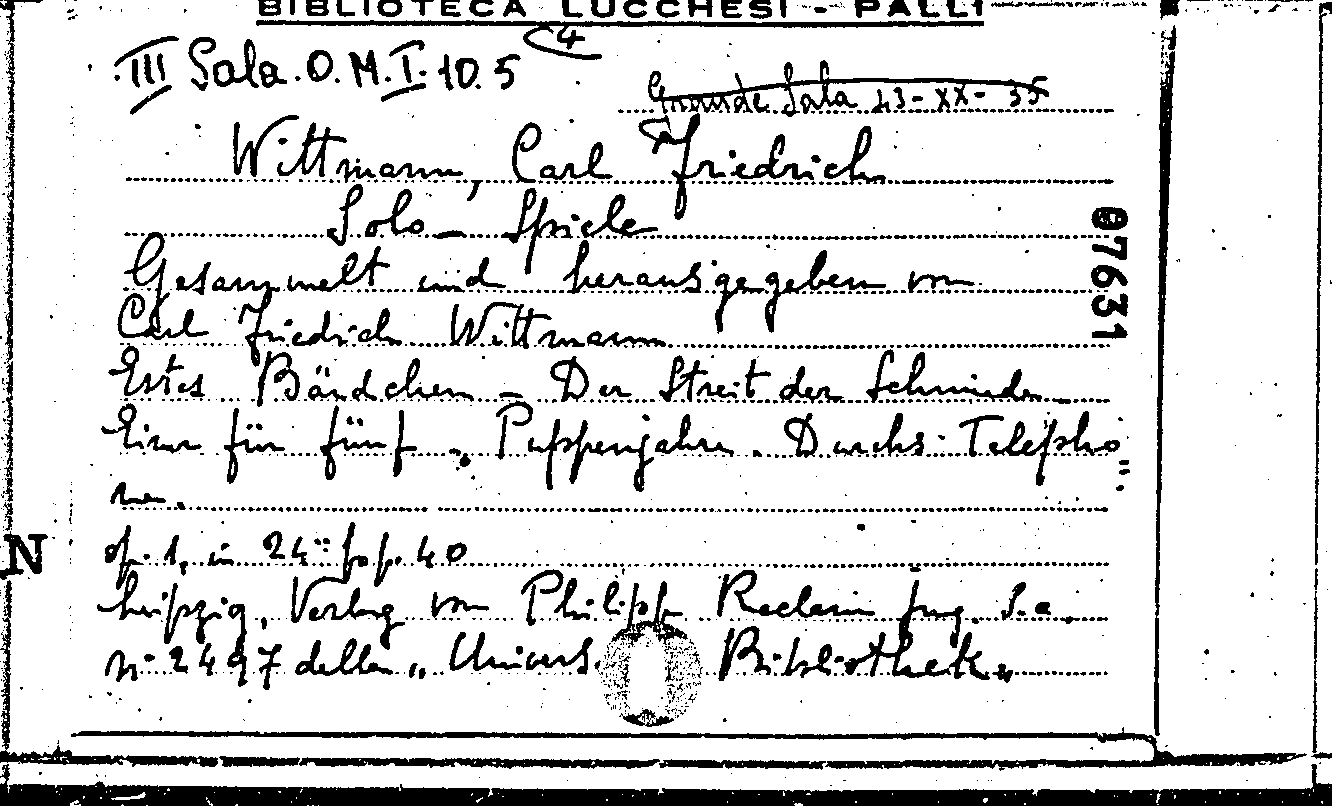 BIBLIOTECA LUCCHESI - PALLI
III Sala. O. M. I. 10. 5 (4
Grande Sala 23-XX-35
Wittmann, Carl Friedrich
Solo - Spiele
Gesammelt und herausgegeben von
Carl Friedrich Wittmann
Estes Bändchen - Der Streit der
Einer für fünf - „Puppenjahre. Durchs Telepho
ne."
op. 1, in 24° pp. 40
Leipzig, Verlag von Philipp Reclam jung. S.a.
n. 2497 della „Univers. Bibliothek„
07631
N